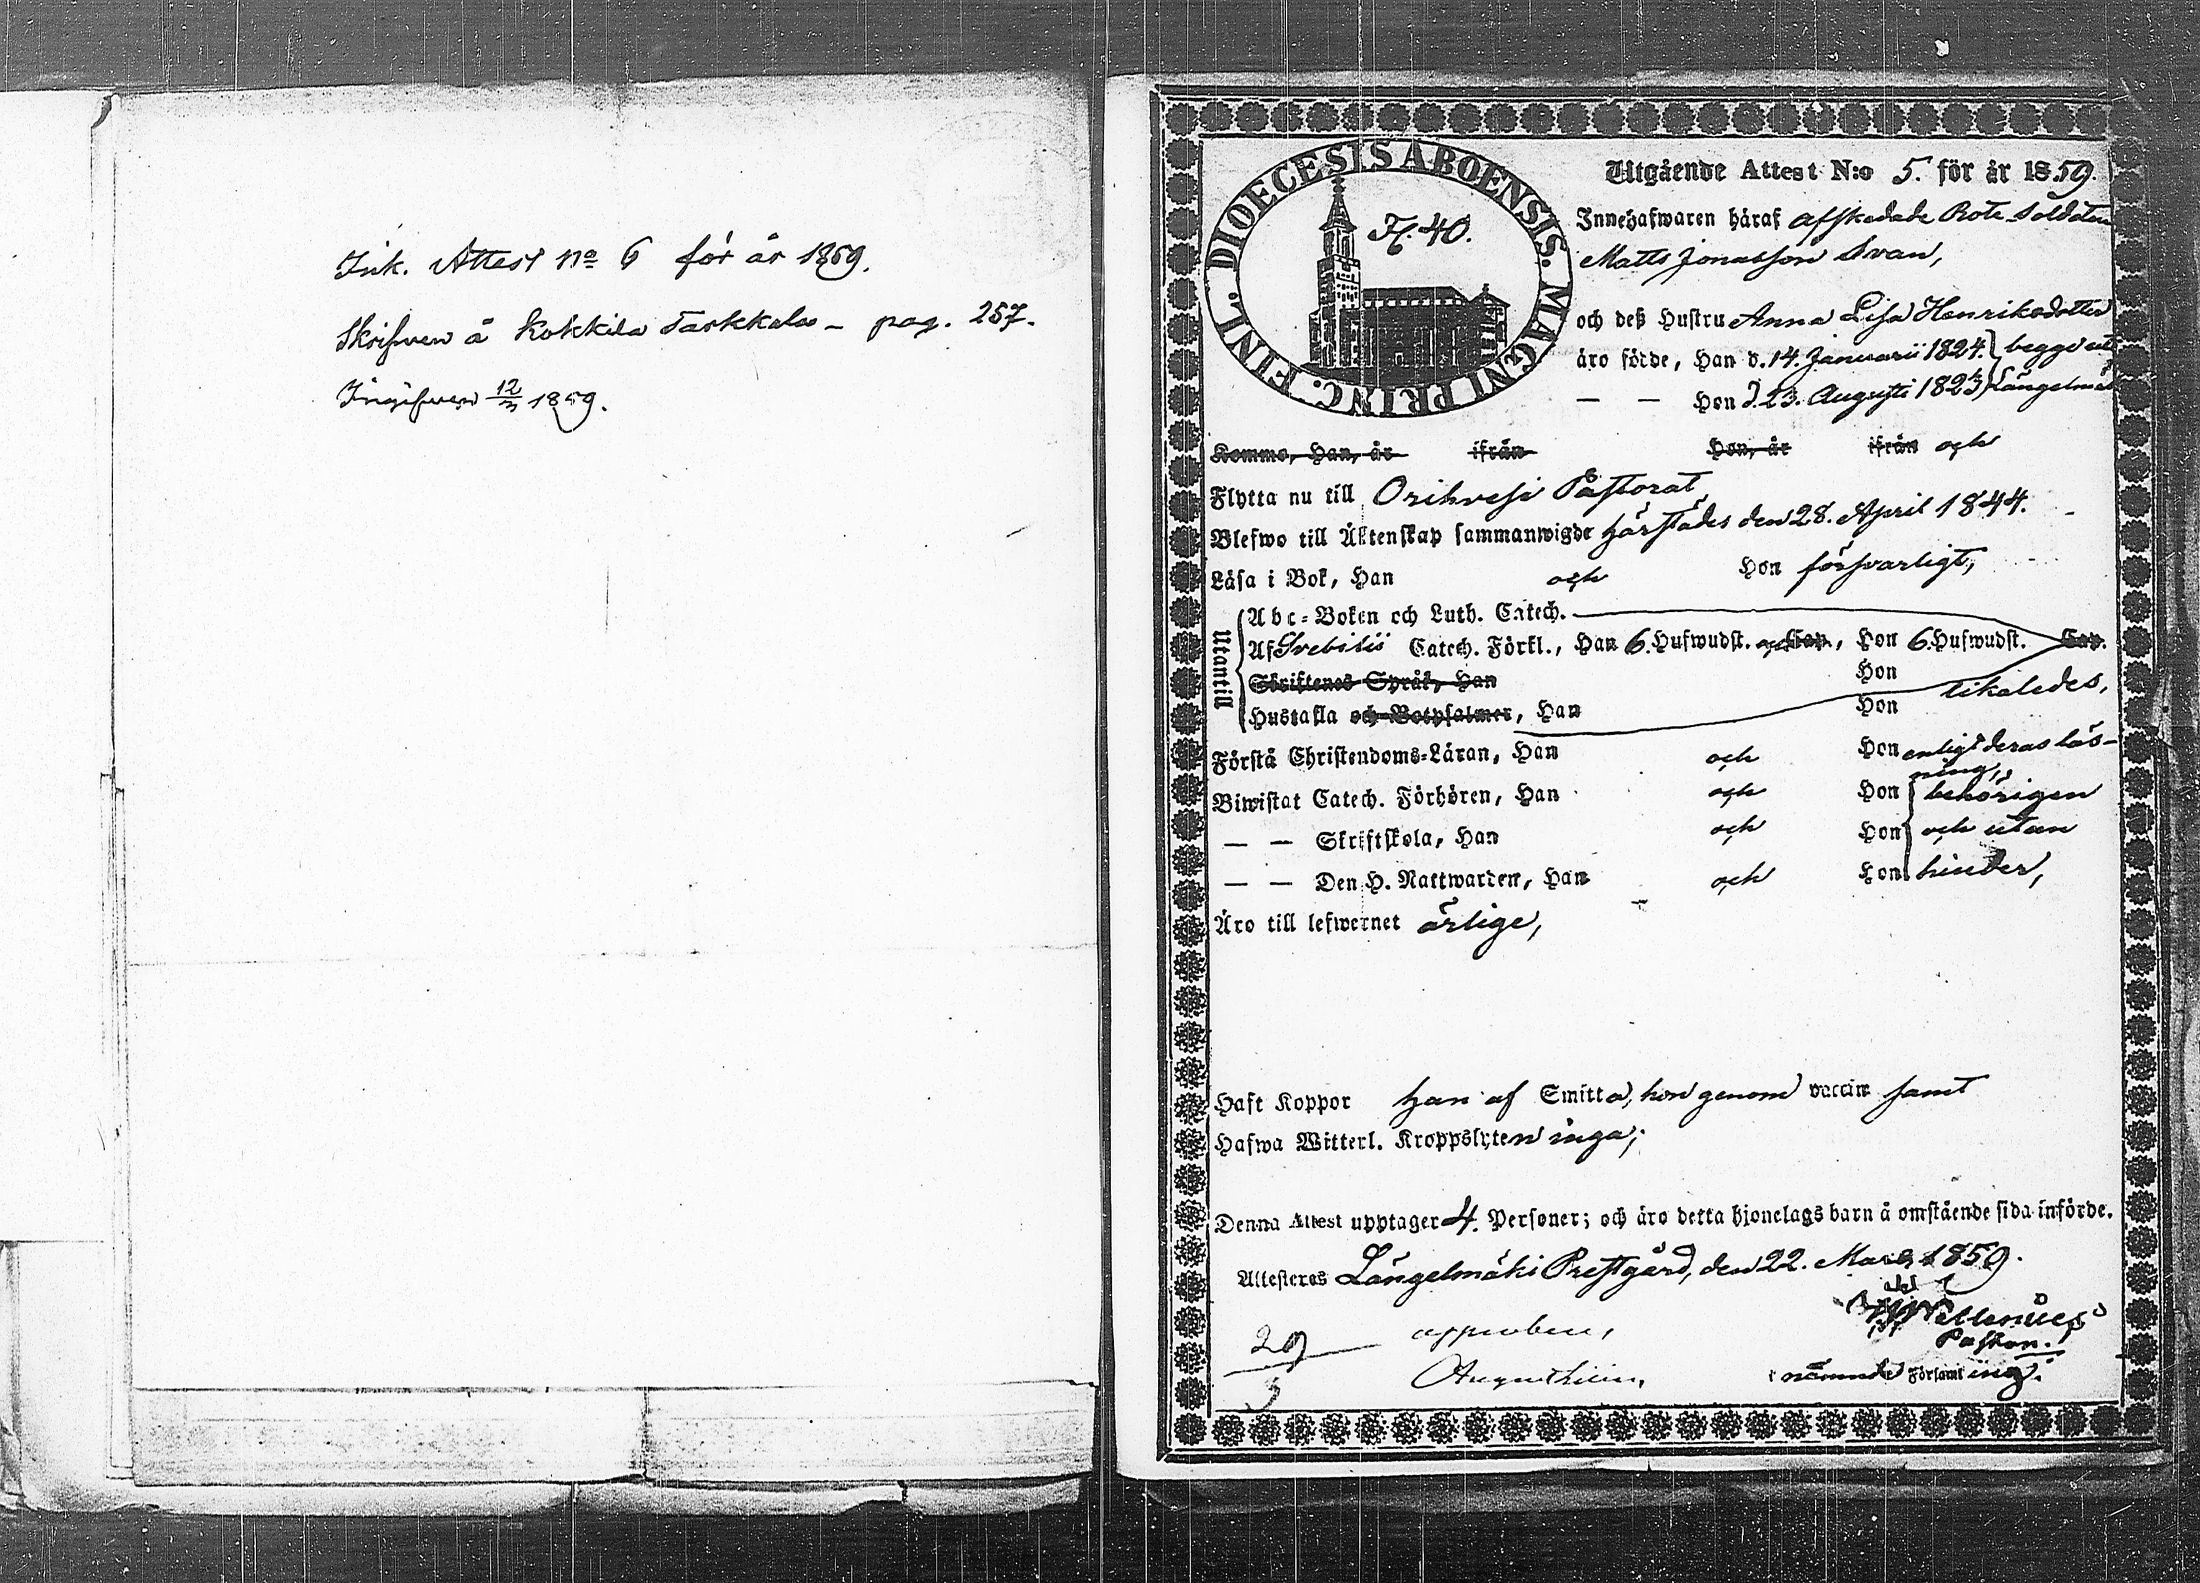 Ink. Attest No 6 för år 1859.
Skrifven å Kokkila Tarkkala - pag. 257.
Ingifven 12/3 1859.
DIOECESIS ABOENSIS. MAGNI PRINC. FINL.
H. 40.
Utgående Attest N:o 5. för år 1859.
Innehafwaren häraf afskedade Rote Soldaten
Matts Jonasson Svan,
och deß Hustru Anna Lisa Henriksdotter
äro födde, Han d. 14. Januarii 1824. begge
— — Hon d. 23. Augusti 1823 Längelmä
Komme, Han, år ifrån Hon, år ifrån och
Flytta nu till Orihvesi Pastorat
Blefwo till Äktenskap sammanwigde härstädes den 28. April 1844.
Läsa i Bok, Han och Hon försvarligt,
Utantill
Abc-Boken och Luth. Catech.
Af Svebilii Catech. Förkl., Han 6. Hufwudst. och Cap., Hon 6. Hufwudst. Cap.
Skriftenes Språk, Han Hon
Hustafla och Botpsalmer, Han Hon likaledes,
Förstå Christendoms-Läran, Han och Hon enligt deras läs-
ning,
Biwistat Catech. Förhören, Han och Hon behörigen
— — Skriftskola, Han och Hon och utan
— — Den H. Nattwarden, Han och Hon hinder,
Äro till lefwernet ärlige,
Haft Koppor han af Smitta, hon genom vaccin samt
Hafwa Witterl. Kroppslyten inga;
Denna Attest upptager 4. Personer; och äro detta hjonelags barn å omstående sida införde.
Attesteras Längelmäki Prestgård, den 22. Mars 1859.
Pastor.
i nämnde Församling.